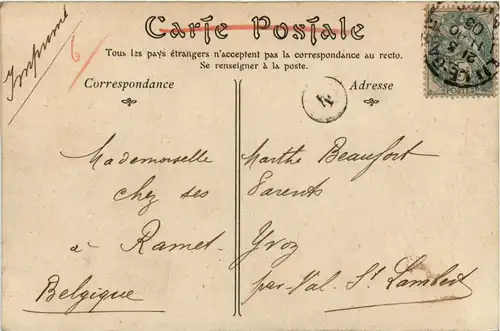 Carte Postale
Imprimé
6
Tous les pays étrangers n'acceptent pas la correspondance au recto.
Se renseigner à la poste.
Correspondance
Adresse
Mademoiselle Marthe Beaufort
chez ses Parents
à Ramet-Yvoz
par Val St Lambert
Belgique